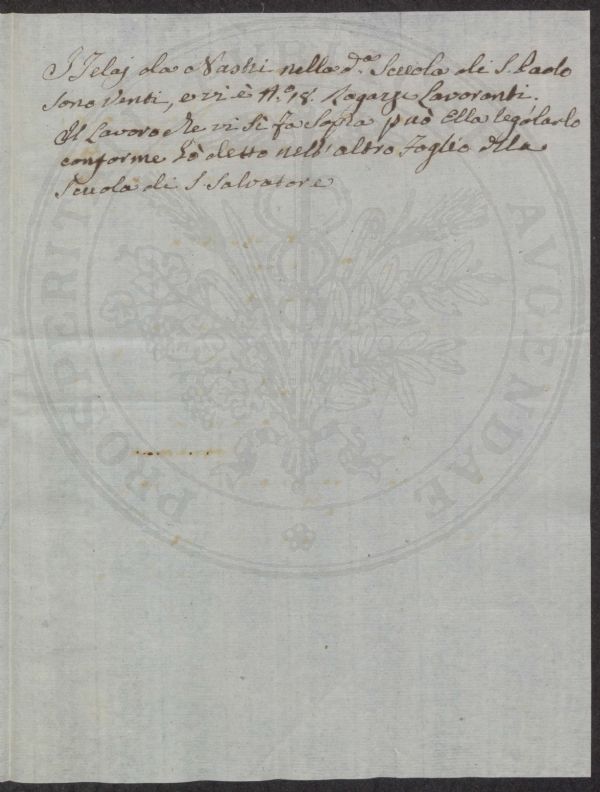 I Telaj da Nastri nella d.ª Scuola di S. Paolo
sono Venti, e vi è N.º 18. Ragazze Lavoranti.
Il Lavoro che vi si fa sopra può Ella regolarlo
conforme hò detto nell'altro Foglio della
Scuola di S Salvatore
PROSPERITATI AUGENDAE